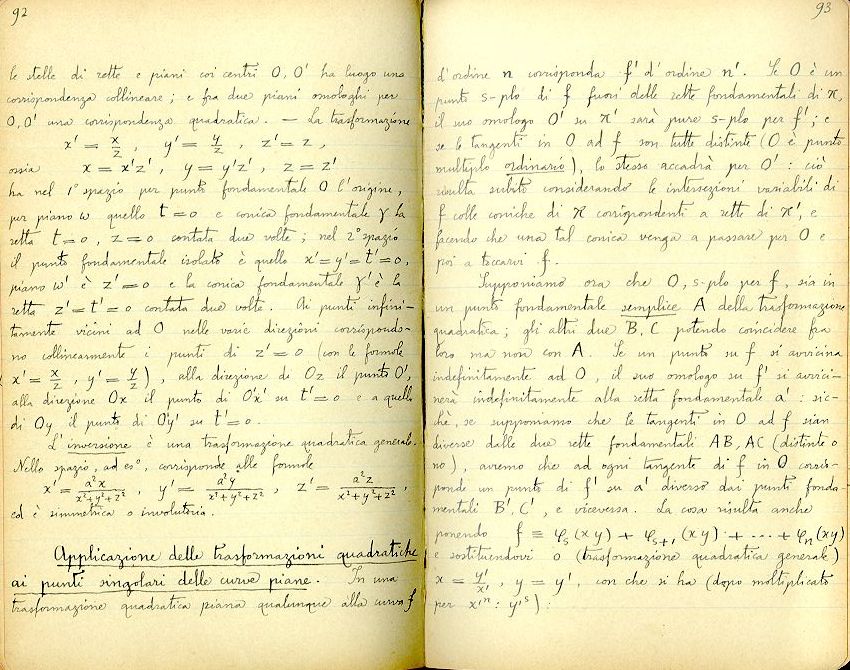 92
le stelle di rette e piani coi centri O, O' ha luogo una
corrispondenza collineare; e fra due piani omologhi per
O, O' una corrispondenza quadratica. — La trasformazione
x' = x/z , y' = y/z , z' = z ,
ossia x = x'z' , y = y'z' , z = z'
ha nel 1° spazio per punto fondamentale O l'origine,
per piano ω quello t = 0 e conica fondamentale γ la
retta t = 0, z = 0 contata due volte; nel 2° spazio
il punto fondamentale isolato è quello x' = y' = t' = 0,
piano ω' è z' = 0 e la conica fondamentale γ' è la
retta z' = t' = 0 contata due volte. Ai punti infini-
tamente vicini ad O nelle varie direzioni corrispondo-
no collinearmente i punti di z' = 0 (con le formole
x' = x/z , y' = y/z), alla direzione di Oz il punto O',
alla direzione Ox il punto di O'x' su t' = 0 e a quella
di Oy il punto di O'y' su t' = 0.
L'inversione è una trasformazione quadratica generale.
Nello spazio, ad es°, corrisponde alle formole
x' = a²x/(x²+y²+z²) , y' = a²y/(x²+y²+z²) , z' = a²z/(x²+y²+z²) ,
ed è simmetrica o involutoria.
Applicazione delle trasformazioni quadratiche
ai punti singolari delle curve piane. In una
trasformazione quadratica piana qualunque alla curva f
93
d'ordine n corrisponda f' d'ordine n'. Se O è un
punto s-plo di f fuori delle rette fondamentali di π,
il suo omologo O' su π' sarà pure s-plo per f'; e
se le tangenti in O ad f son tutte distinte (O è punto
multiplo ordinario), lo stesso accadrà per O' : ciò
risulta subito considerando le intersezioni variabili di
f colle coniche di π corrispondenti a rette di π', e
facendo che una tal conica venga a passare per O e
poi a toccarvi f.
Supponiamo ora che O, s-plo per f, sia in
un punto fondamentale semplice A della trasformazione
quadratica; gli altri due B, C potendo coincidere fra
loro ma non con A. Se un punto su f si avvicina
indefinitamente ad O, il suo omologo su f' si avvici-
nerà indefinitamente alla retta fondamentale a' : sic-
chè, se supponiamo che le tangenti in O ad f sian
diverse dalle due rette fondamentali AB, AC (distinte o
no), avremo che ad ogni tangente di f in O corris-
ponde un punto di f' su a' diverso dai punti fonda-
mentali B', C', e viceversa. La cosa risulta anche
ponendo f ≡ φₛ(xy) + φₛ₊₁(xy) + ··· + φₙ(xy)
e sostituendovi o (trasformazione quadratica generale)
x = y'/x' , y = y', con che si ha (dopo moltiplicato
per x'ⁿ : y'ˢ) :